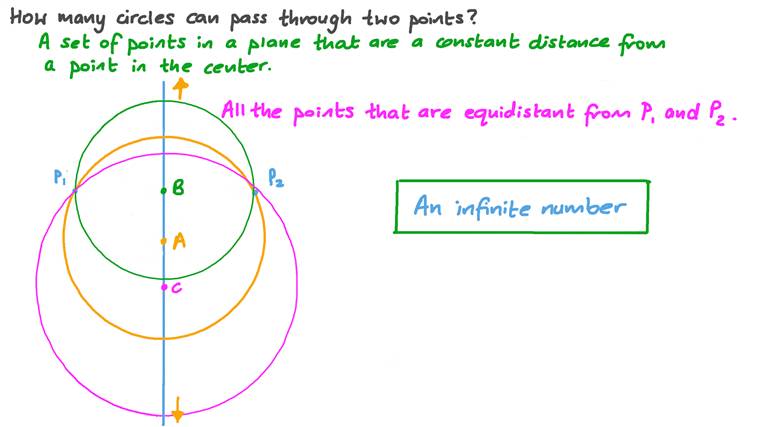 How many circles can pass through two points?
A set of points in a plane that are a constant distance from
a point in the center.
All the points that are equidistant from P₁ and P₂.
P₁
P₂
B
An infinite number
A
C